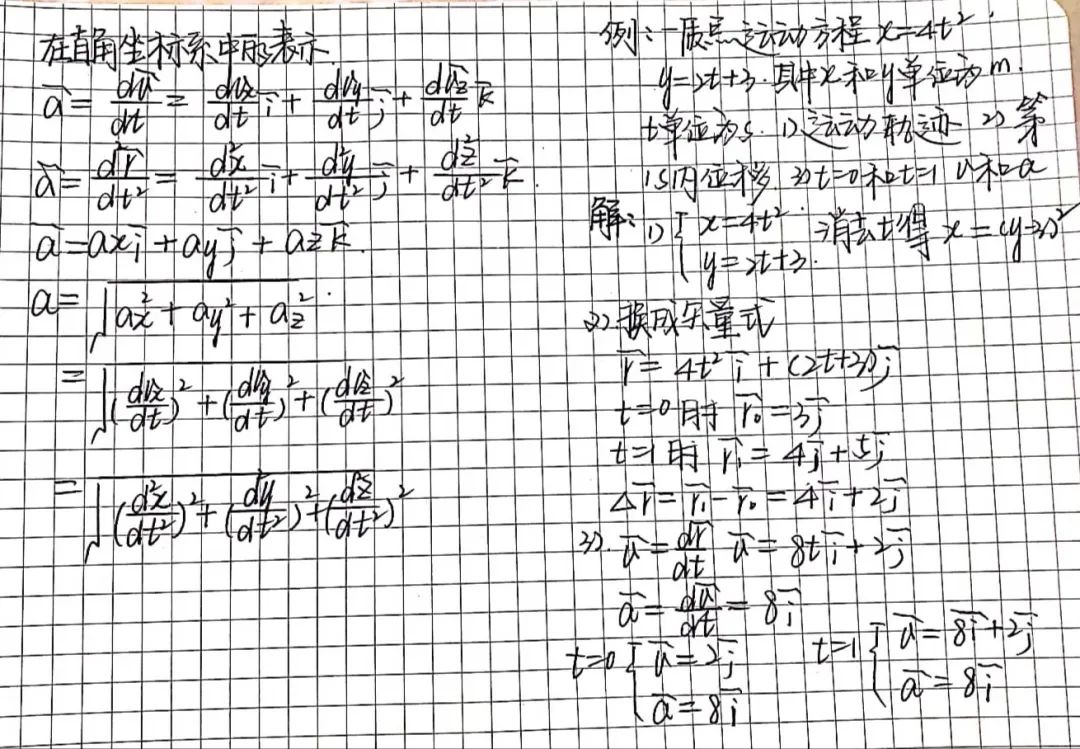 在直角坐标系中的表示.
a⃗ = dv⃗/dt = dvx/dt i⃗ + dvy/dt j⃗ + dvz/dt k⃗
a⃗ = d²r⃗/dt² = d²x/dt² i⃗ + d²y/dt² j⃗ + d²z/dt² k⃗.
a⃗ = ax i⃗ + ay j⃗ + az k⃗.
a = √(ax² + ay² + az²).
= √((dvx/dt)² + (dvy/dt)² + (dvz/dt)²)
= √((d²x/dt²)² + (d²y/dt²)² + (d²z/dt²)²)
例: 一质点运动方程 x=4t².
y=2t+3. 其中x和y单位为m.
t单位为s. 1)运动轨迹 2) 第
1s内位移. 3) t=0和t=1 v和a
解: 1) { x=4t². 消去t得 x=(y-3)²
y=2t+3.
2). 换成矢量式
r⃗ = 4t² i⃗ + (2t+3) j⃗
t=0时 r⃗₀ = 3j⃗
t=1时 r⃗₁ = 4j⃗ + 5j⃗
Δr⃗ = r⃗₁ - r⃗₀ = 4i⃗ + 2j⃗
3). v⃗ = dr⃗/dt v⃗ = 8t i⃗ + 2j⃗
a⃗ = dv⃗/dt = 8i⃗
t=0 { v⃗ = 2j⃗
a⃗ = 8i⃗
t=1 { v⃗ = 8i⃗ + 2j⃗
a⃗ = 8i⃗